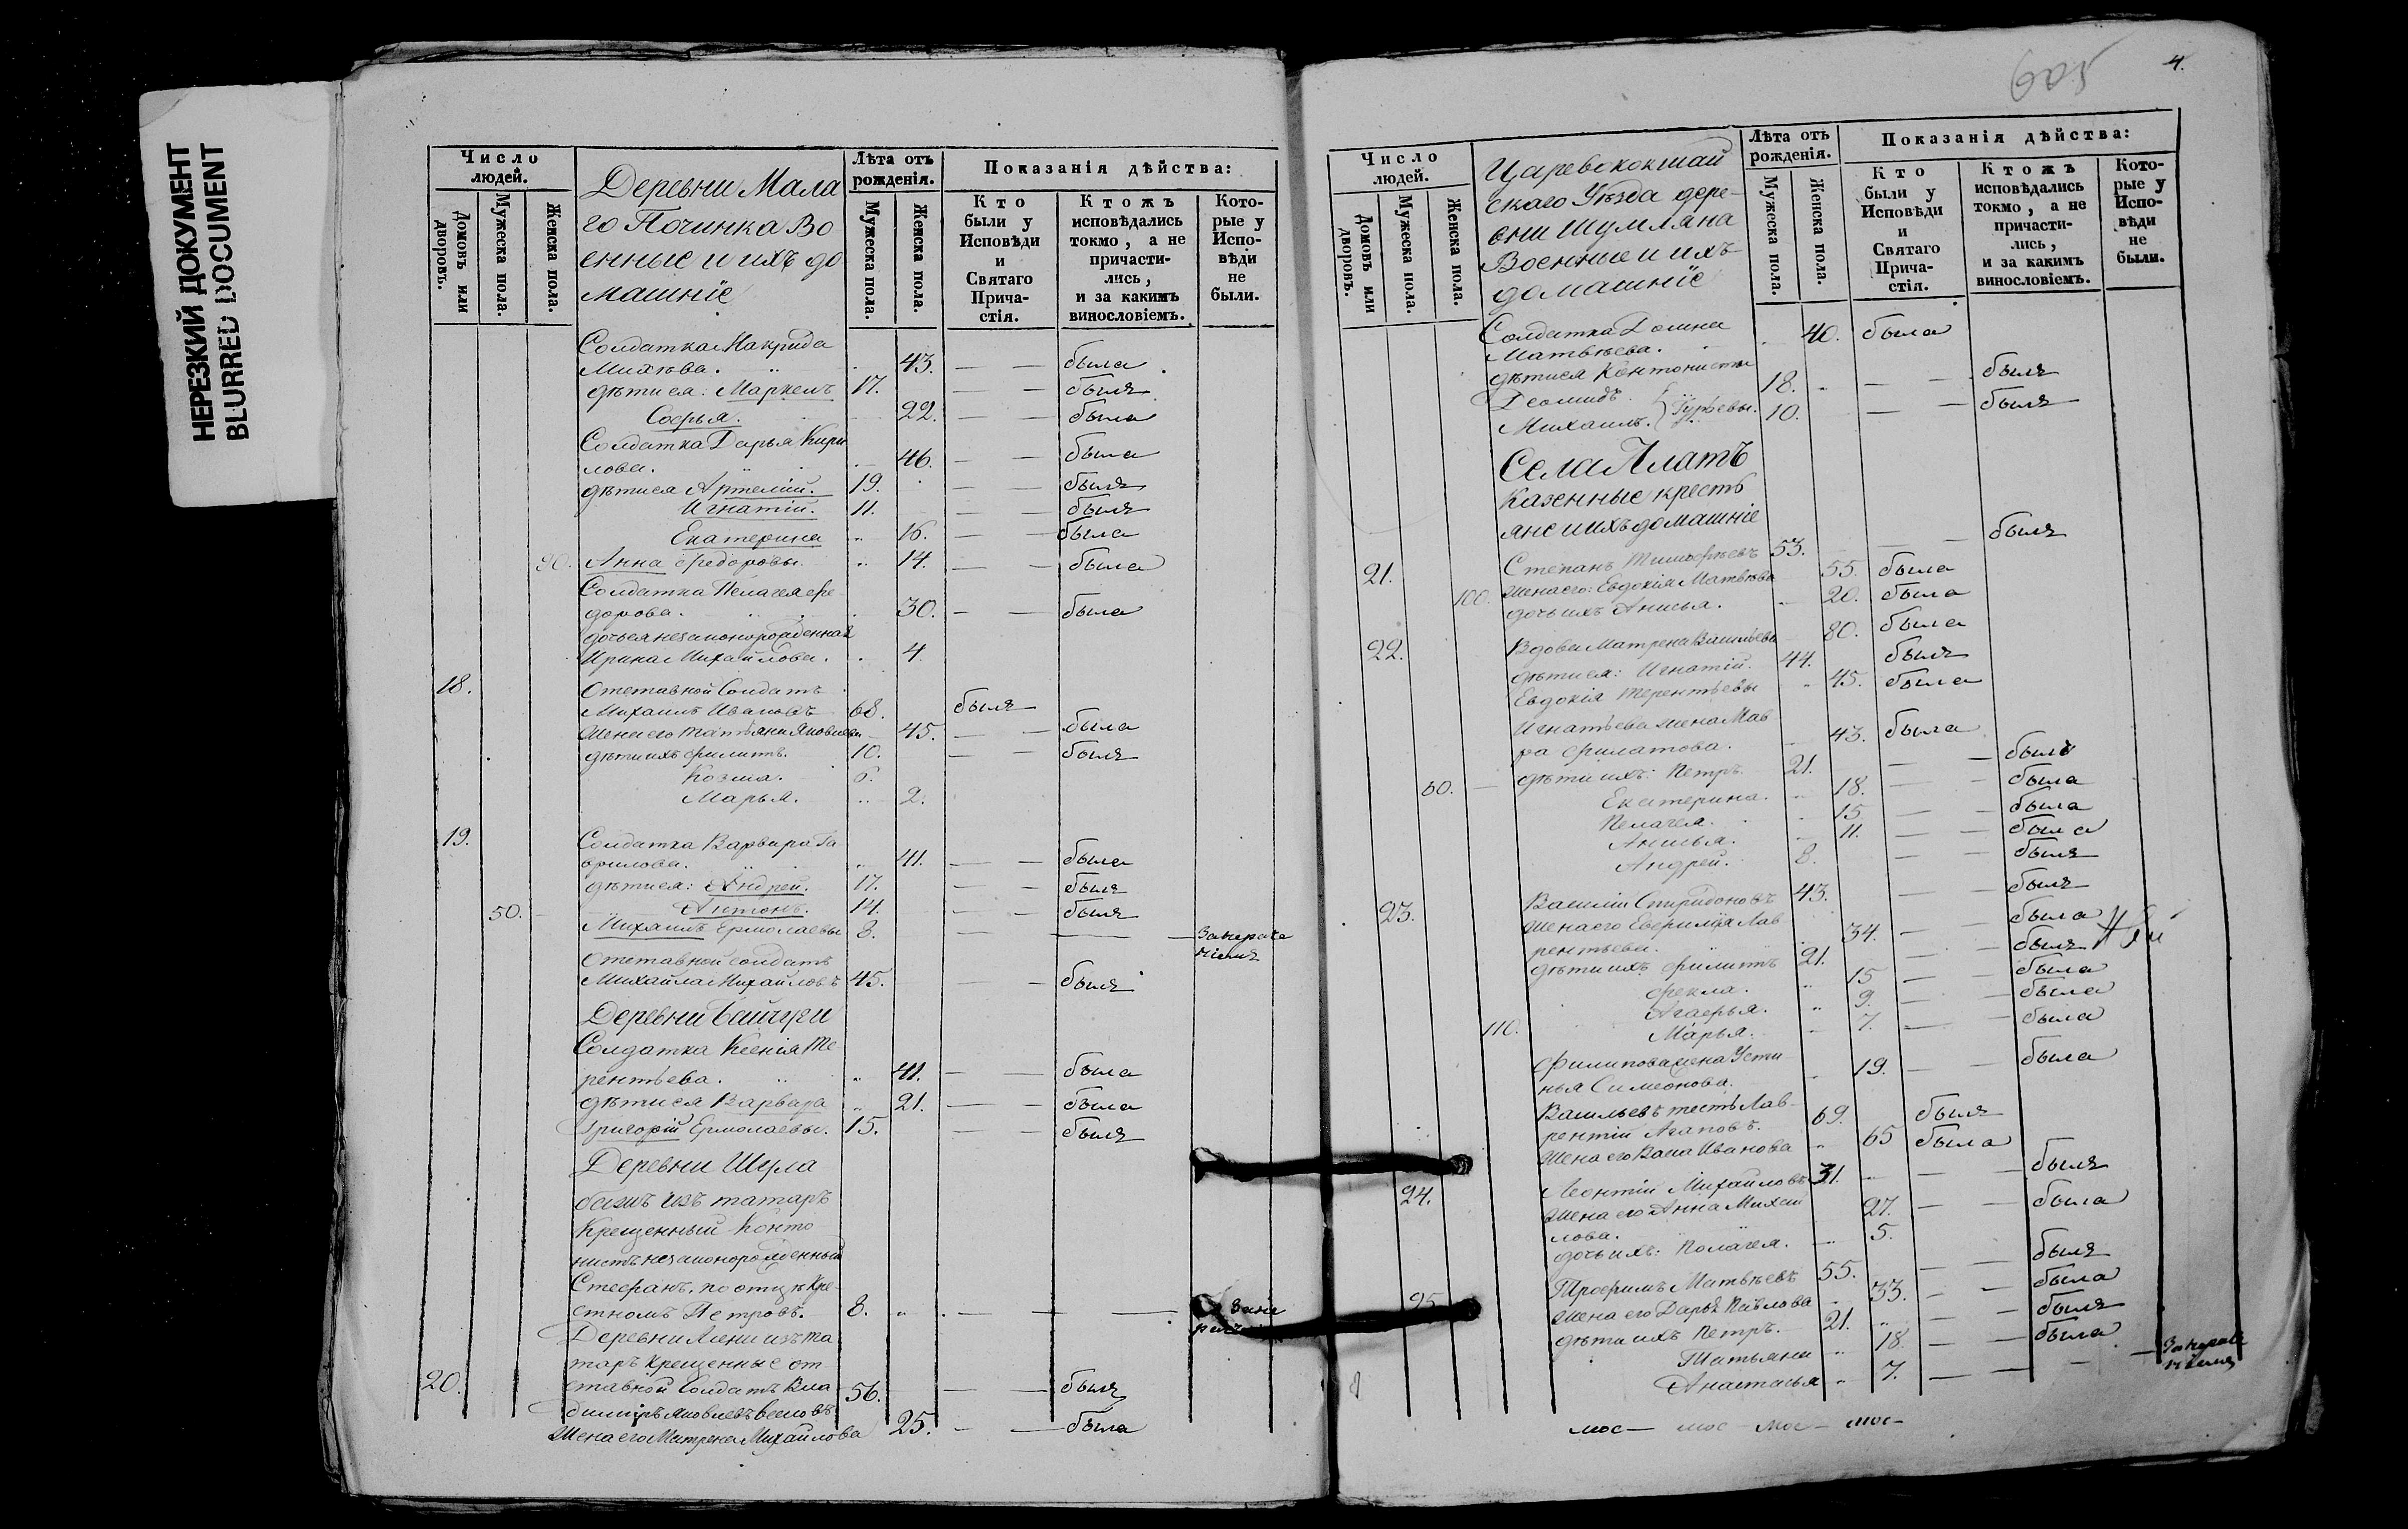 НЕРЕЗКИЙ ДОКУМЕНТ
BLURRED DOCUMENT
Число людей.
Домовъ или дворовъ.
Мужеска пола.
Женска пола.
Деревни Мала
го Починка Во
енные и ихъ до
машніе
Лѣта отъ рожденія.
Мужеска пола.
Женска пола.
Показанія дѣйства:
Кто были у Исповѣди и Святаго Причастія.
Ктожъ исповѣдались токмо, а не причастились, и за какимъ винословіемъ.
Которые у Исповѣди не были.
Солдатка Макрида
Михѣева. 43. — — была
дѣти ея: Маркелъ 17. — — былъ
Софья. 22. — — была
Солдатка Дарья Кири
лова. 46. — — была
дѣти ея Артемій. 19. — — былъ
Игнатій. 11. — — былъ
Екатерина 16. — — была
90. Анна Ѳедоровы. 14. — — была
Солдатка Пелагея Ѳе
дорова. 30. — — была
дочь ея незаконорожденная
Ирина Михайлова. 4
18. Отставной Солдатъ
Михаилъ Ивановъ 68. былъ
Жена его Татьяна Яковлева 45. — — была
дѣти ихъ Филиппъ. 10. — былъ
Козма. 6.
Марья. 2.
19. Солдатка Варвара Га
врилова. 41. — — была
дѣти ея: Андрей. 17. — — былъ
50. Антонъ. 14. — — былъ
Михаилъ Ермолаевы 8. — — —
Отставной солдатъ
Михайла Михайловъ 45. — — былъ
Деревни Байчуги
Солдатка Ксенія Те
рентьева. 41. — — была
дѣти ея Варвара 21. — — была
Григорій Ермолаевы. 15. — — былъ
Деревни Шула
башъ изъ татаръ
Крещенный Канто
нистъ незаконорожденный
Стефанъ, по отцѣ кре
стномъ Петровъ. 8. — — —
Деревни Алени изъ та
таръ крещенные от
20. ставной Солдатъ Вла 56. — — былъ
диміръ Яковлевъ
Жена его Матрена Михайлова 25. — — была
605
4.
Число людей.
Домовъ или дворовъ.
Мужеска пола.
Женска пола.
Царевококшай
скаго Уѣзда дере-
вни Шумляпа
Военные и ихъ
домашніе
Лѣта отъ рожденія.
Мужеска пола.
Женска пола.
Показанія дѣйства:
Кто были у Исповѣди и Святаго Причастія.
Ктожъ исповѣдались токмо, а не причастились, и за какимъ винословіемъ.
Которые у Исповѣди не были.
Солдатка Домна 40. была
Матвѣева.
дѣти ея Кантонисты
Деомидъ 18. — — былъ
Михаилъ. Гурьевы. 10. — — былъ
Села Алатъ
Казенные кресть
яне и ихъ домашніе
21. Степанъ Тимофѣевъ 53. — — былъ
Жена его: Евдокія Матвѣева 55. была
100. дочь ихъ Анисья. 20. была
22. Вдова Матрена Васильева 80. была
дѣти ея: Игнатій. 44. былъ
Евдокія Терентьевы 45. была
Игнатьева жена Мав
ра Филатова. 43. была
60. дѣти ихъ: Петръ. 21. — — былъ
Екатерина. 18. — — была
Пелагея. 15 — — была
Анисья. 11. — — была
Андрей. 8. — — былъ
23. Василій Спиридоновъ 43. — — былъ
Жена его Евфимія Лав
рентьева. 34. — — была
дѣти ихъ Филиппъ 21. — — былъ
Ѳекла. 15 — — была
Агафья. 9. — — была
110. Марья. 7. — — была
Филипова жена Усти
нья Симеонова. 19. — — была
Васильевъ тесть Лав-
рентій Агаповъ. 69. былъ
Жена его Васа Иванова 65 была
24. Леонтій Михайловъ 31. — — былъ
Жена его Анна Михай
лова. 27. — — была
дочь ихъ: Полагея. 5.
25 Трофимъ Матвѣевъ 55. — — былъ
Жена его Дарья Павлова 33. — — была
дѣти ихъ Петръ. 21. — — былъ
Татьяна 18 — — была
Анастасья 7. — —